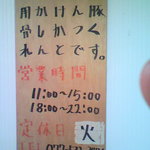 用かけん豚
骨しかつく
れんとです。
営業時間
11:00~15:00
18:00~22:00
定休日 火